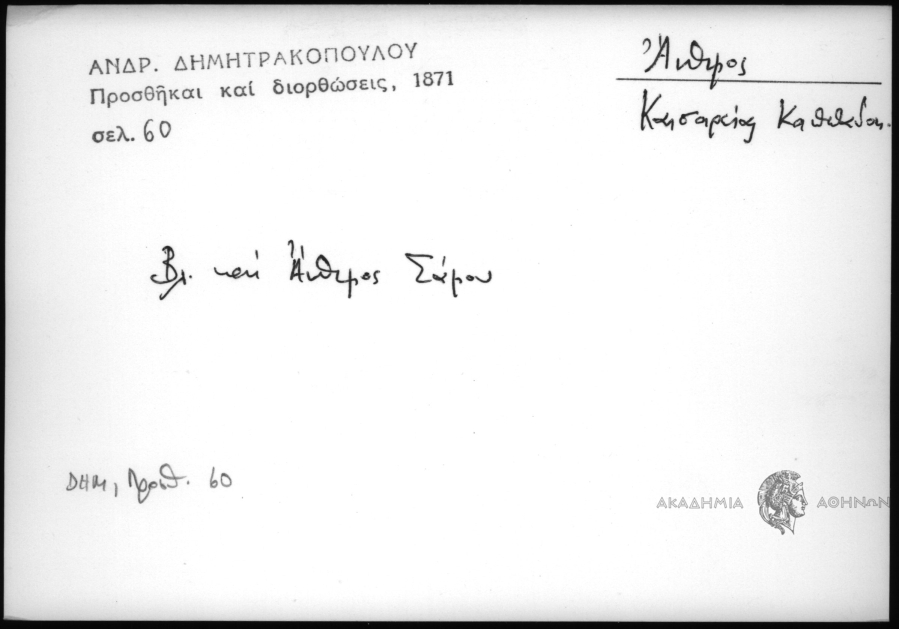 ΑΝΔΡ. ΔΗΜΗΤΡΑΚΟΠΟΥΛΟΥ
Προσθῆκαι καί διορθώσεις, 1871
σελ. 60
Ἄνθιμος
Καισαρείας Καππαδοκ.
Βλ. καί Ἄνθιμος Σάμου
ΔΗΜ, Προσθ. 60
ΑΚΑΔΗΜΙΑ ΑΘΗΝΩΝ